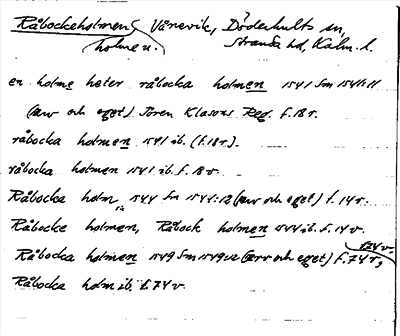 Råbockeholmen, Vånevik, Döderhults sn,
holmen. Stranda hd, Kalm. l.
en holme heter råbocka holmen 1541 Sm 1541:11
(arv och eget) Tören Klasons Reg. f. 18 r.
råbocka holmen 1541 ib. (f. 18 r.).
råbocka holmen 1541 ib. f. 18 v.
Råbocka holm 1544 Sm 1544:12 (arv och eget) f. 14 r.
Råbocke holmen, Råbock holmen 1544 ib. f. 14 v.
174 v.
Råbocka holmen 1549 Sm 1549:12 (arv och eget) f. 74 r,
Råbocka holm ib. f. 74 v.